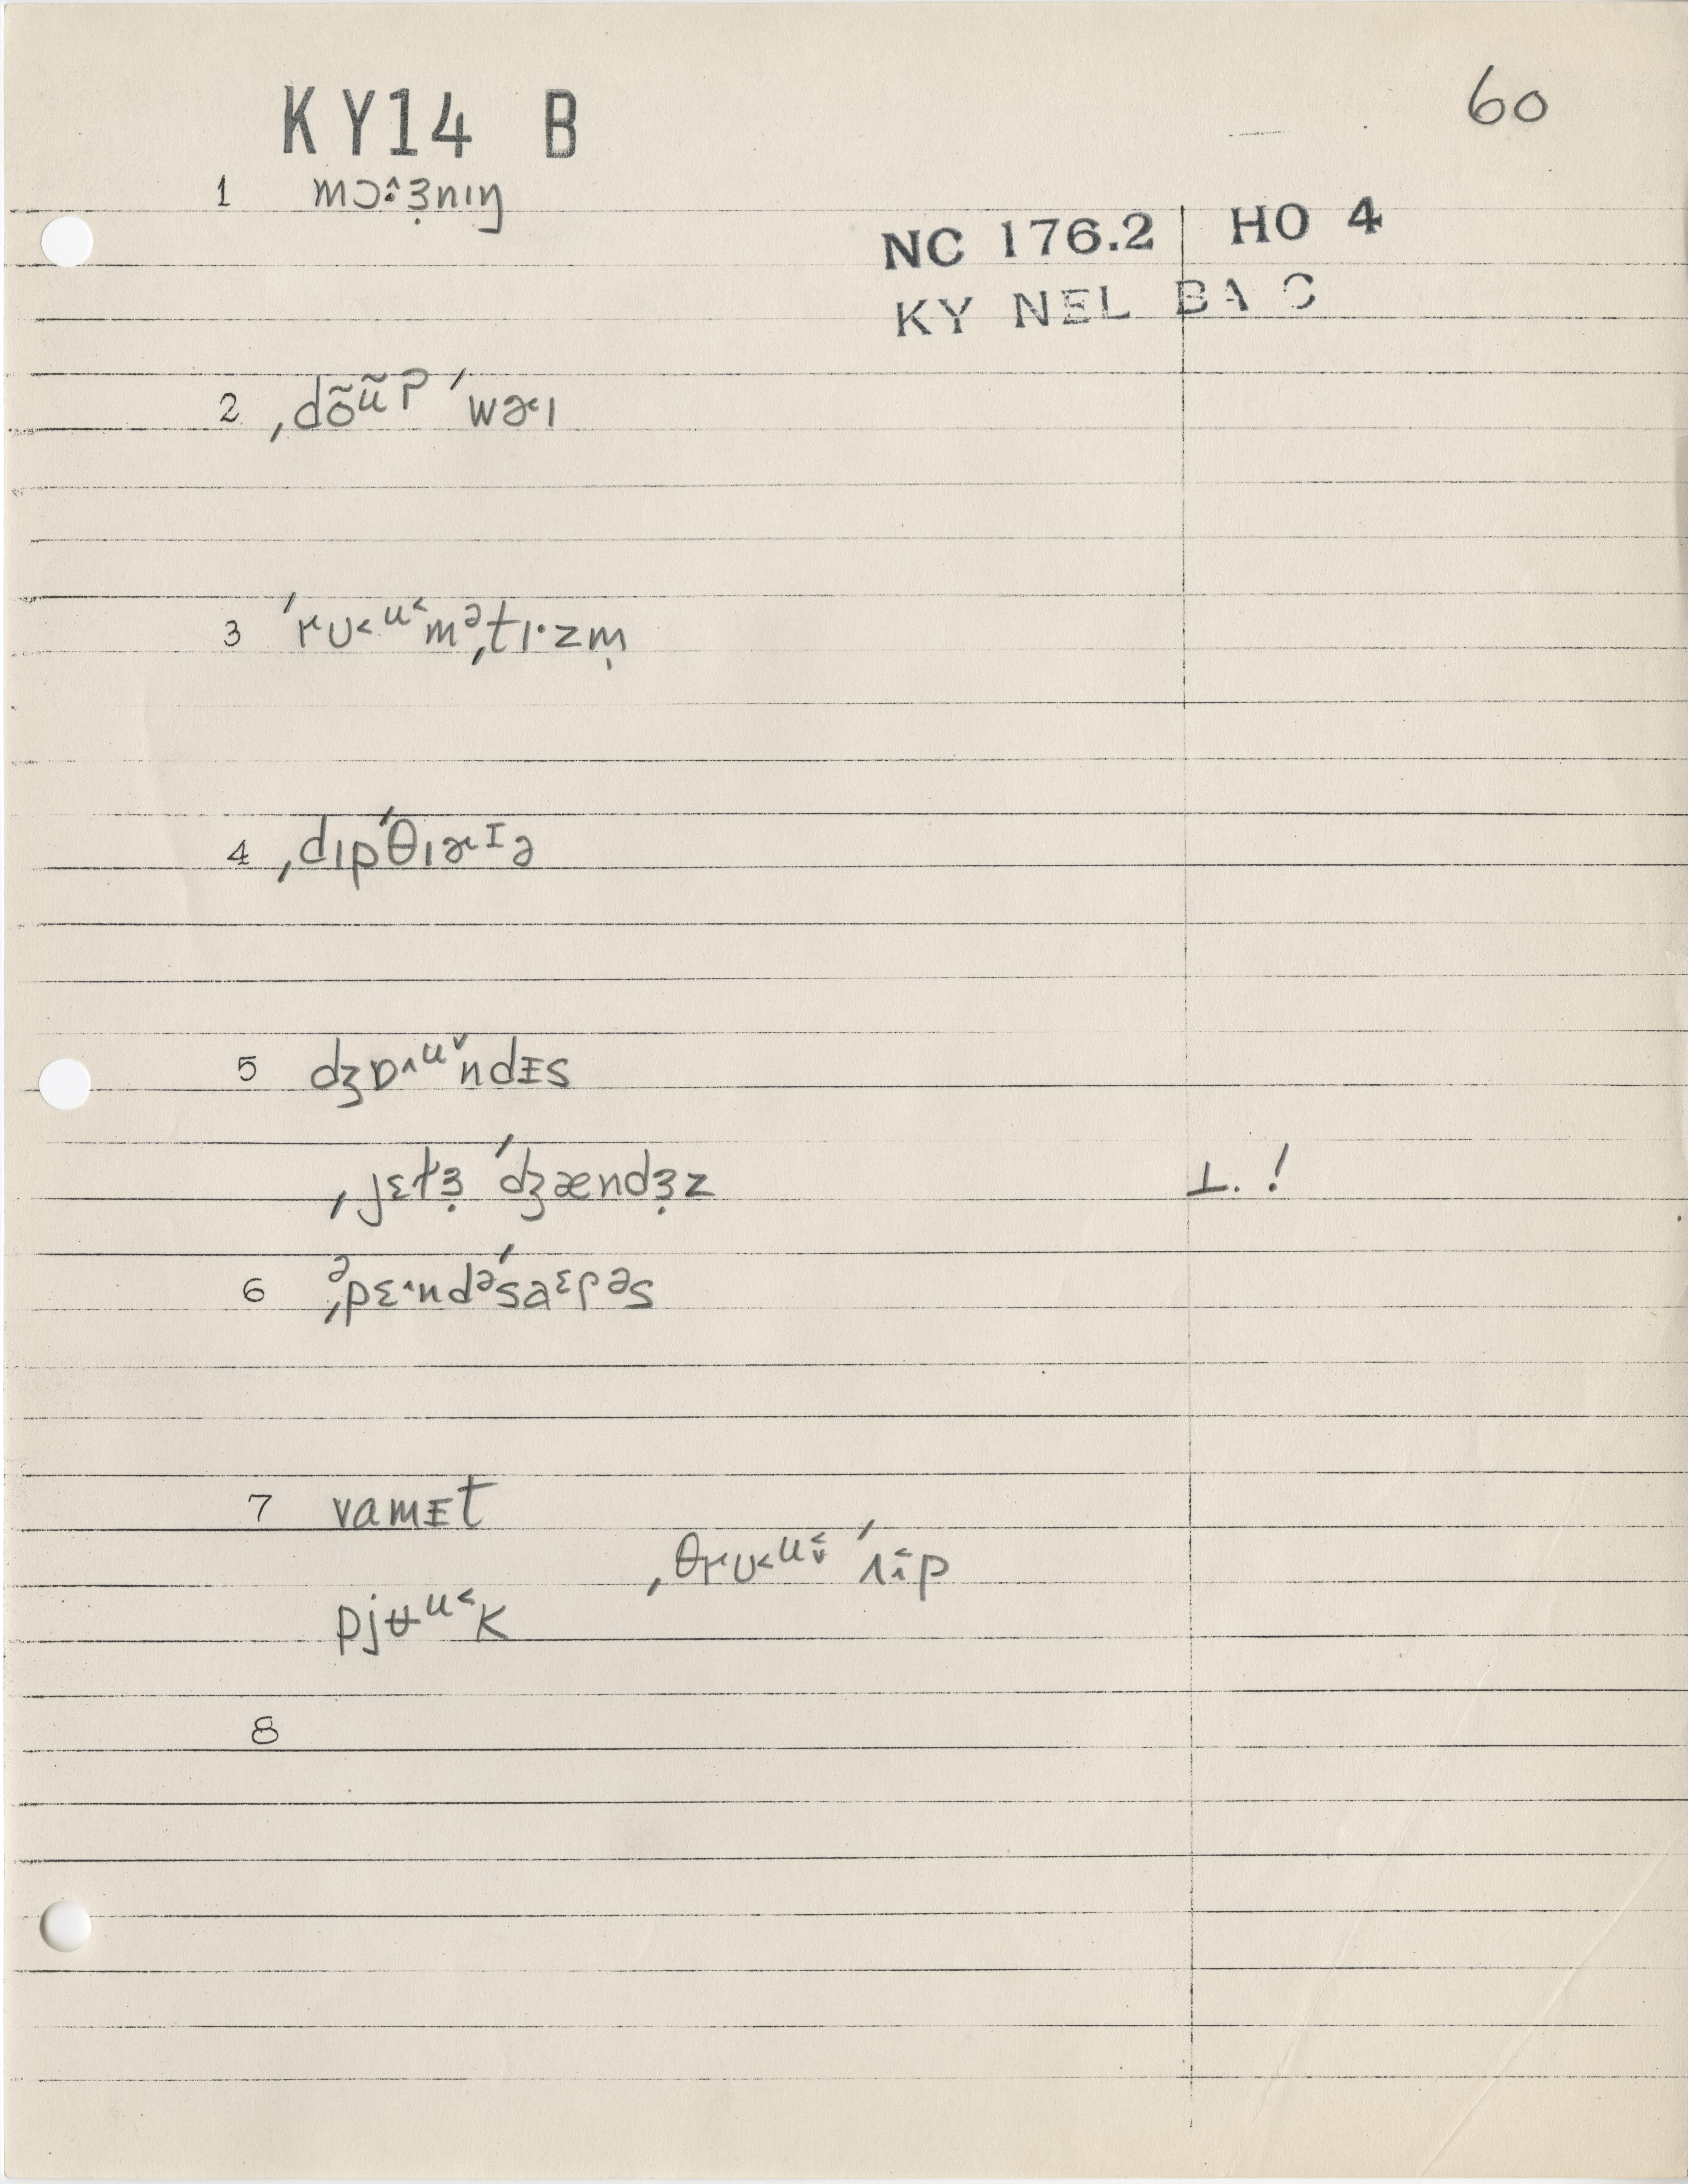 KY14 B
60
1 mɔ˔̣ɜ̣nɪŋ
NC 176.2 HO 4
KY NEL BA C
2 ˌdõᶶ̃ʔ ˈwɚɪ
3 ˈrʊ˂ᵘ˂mᵊˌtɪ·zm̩
4 ˌdɪpˈθɪɚᴵə
5 dʒɒ˄ᵘ˅ndɪs
ˌjɛtɜ̣ ˈdʒændɜ̣z ⊥. !
6 ᵊˌpɛ˄ndᵊˈsaᵋɾəs
7 vamɪt
ˌθrʊ˂ᵘ˂̬ ˈʌîp
pjʉᵘ˂k
8